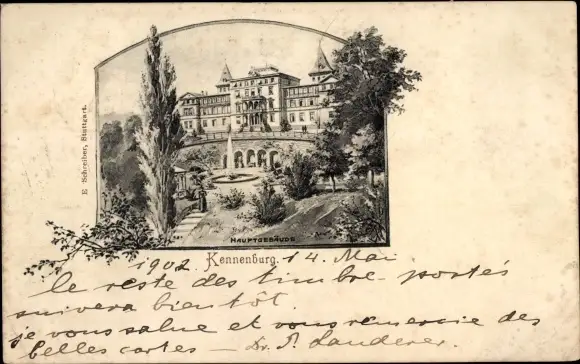 E. Schreiber, Stuttgart.
HAUPTGEBÄUDE
1902. Kennenburg. 14. Mai.
le reste des timbre-postes
suivera bientôt
je vous salue et vous remercie des
belles cartes – Dr. P. Landerer.